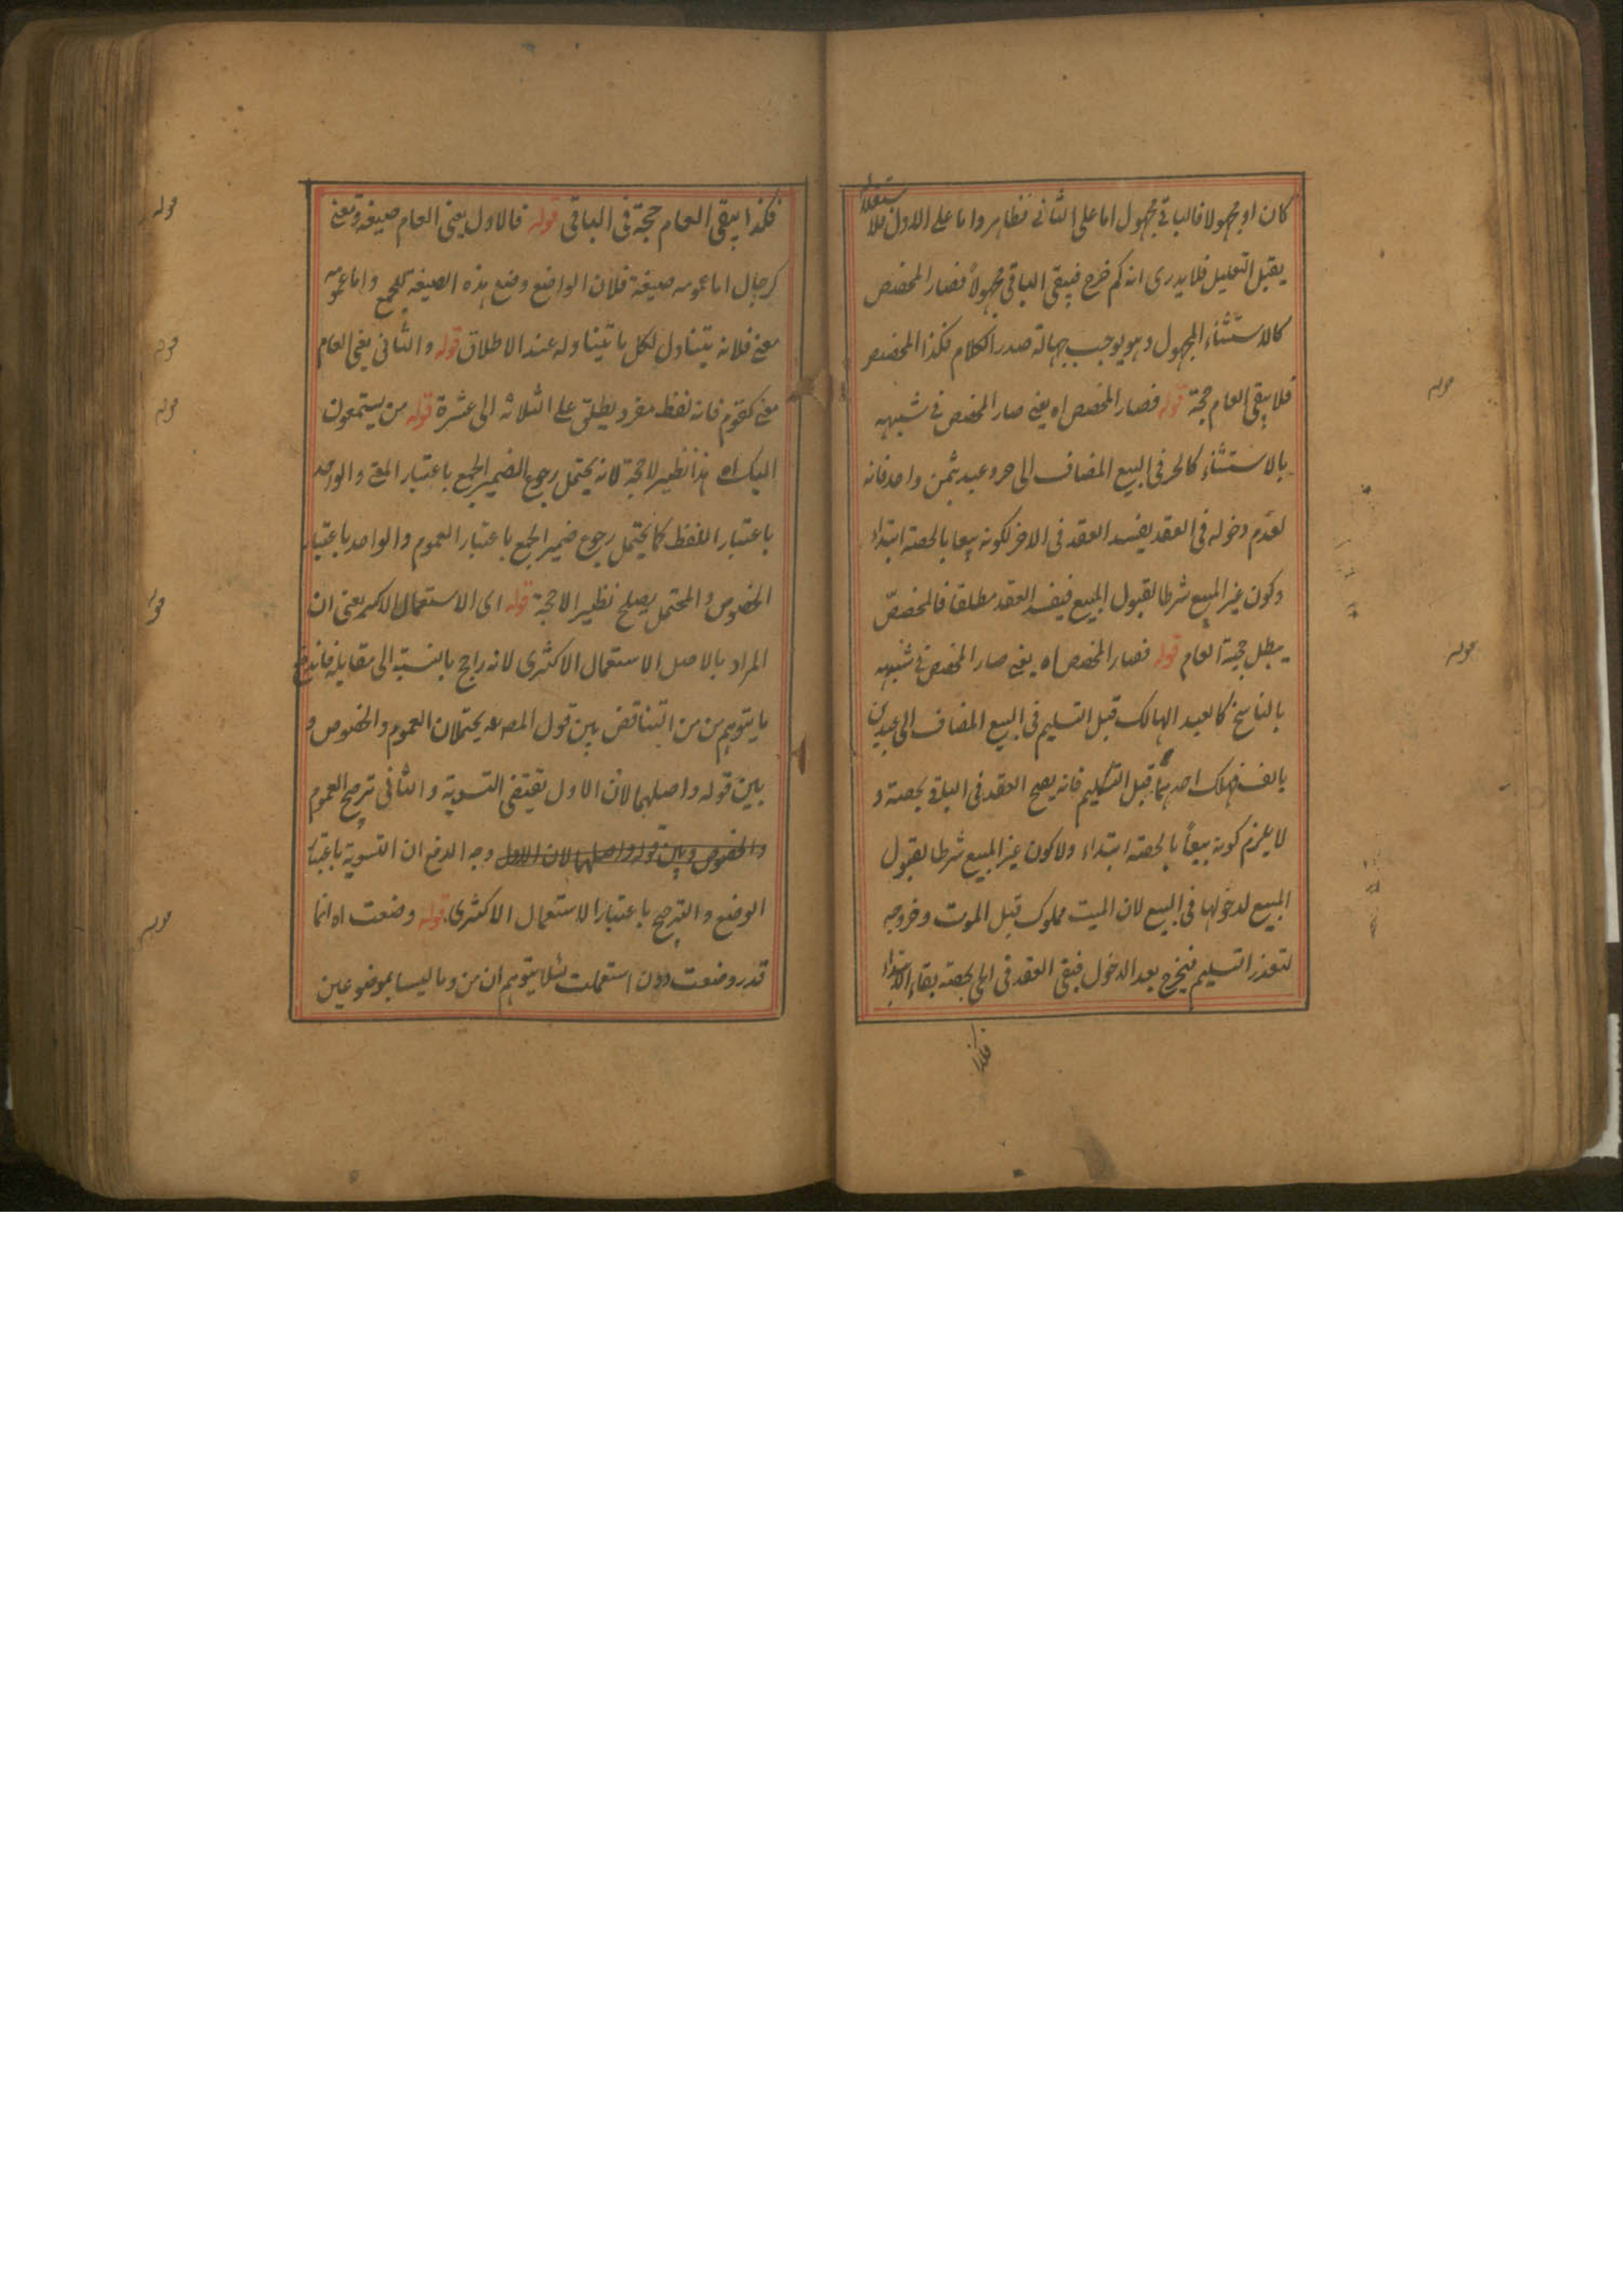 كان او مجهولا فالباقي مجهول اما على الثاني فظاهر واما على الاول فلا
يقبل التعليل فلا يدرى انه كم خرج فيبقى الباقي مجهولاً فصار المخصص
كالاستثناء المجهول وهو يوجب جهالة صدر الكلام فكذا المخصص
فلا يبقى العام حجة قوله فصار المخصص اه يعني صار المخصص في شبهه
بالاستثناء كالحر في البيع المضاف الى حر وعبد بثمن واحد فانه
لعدم دخوله في العقد يفسد العقد في الاخر لكونه بيعا بالحصة ابتداء
وكون غير المبيع شرطا لقبول المبيع فيفسد العقد مطلقا فالمخصص
يبطل حجية العام قوله فصار المخصص اه يعني صار المخصص في شبهه
بالناسخ كالعبد الهالك قبل التسليم في البيع المضاف الى عبدين
بالف فهلك احدهما قبل التسليم فانه يصح العقد في الباقي بحصته و
لا يلزم كونه بيعاً بالحصة ابتداء ولا كون غير المبيع شرطا لقبول
المبيع لدخولها في البيع لان الميت مملوك قبل الموت وخروجه
لتعذر التسليم فيخرج بعد الدخول فبقي العقد في الحي بحصته بقاء لا ابتداء
فكذا
فكذا يبقى العام حجة في الباقي قوله فالاول يعني العام صيغة ومعنى
كرجال اما عمومه صيغة فلان الواضع وضع هذه الصيغة للجمع واما عمومه
معنى فلانه يتناول لكل ما يتناوله عند الاطلاق قوله والثاني يعني العام
معنى كقوم فانه لفظ مفرد يطلق على الثلاثة الى عشرة قوله من يستمعون
اليك اه هذا نظير لا حجة لانه يحتمل رجوع الضمير الجمع باعتبار المعنى والواحد
باعتبار اللفظ كما يحتمل رجوع ضمير الجمع باعتبار العموم والواحد باعتبار
الخصوص والمحتمل يصلح نظير الا حجة قوله اى الاستعمال الاكثر يعني ان
المراد بالاصل الاستعمال الاكثرى لانه راجح بالنسبة الى مقابله فاندفع
ما يتوهم من من التناقض بين قول المص عه يحتملان العموم والخصوص و
بين قوله واصلهما لان الاول يقتضي التسوية والثاني ترجيح العموم
والخصوص وبين قوله واصلهما لان الاول وجه الدفع ان التسوية باعتبار
الوضع والترجيح باعتبار الاستعمال الاكثرى قوله وضعت اه انما
قدر وضعت دون استعملت لئلا يتوهم ان من وما ليسا بموضوعين
قوله
قوله
قوله
قوله
قوله
قوله
قوله